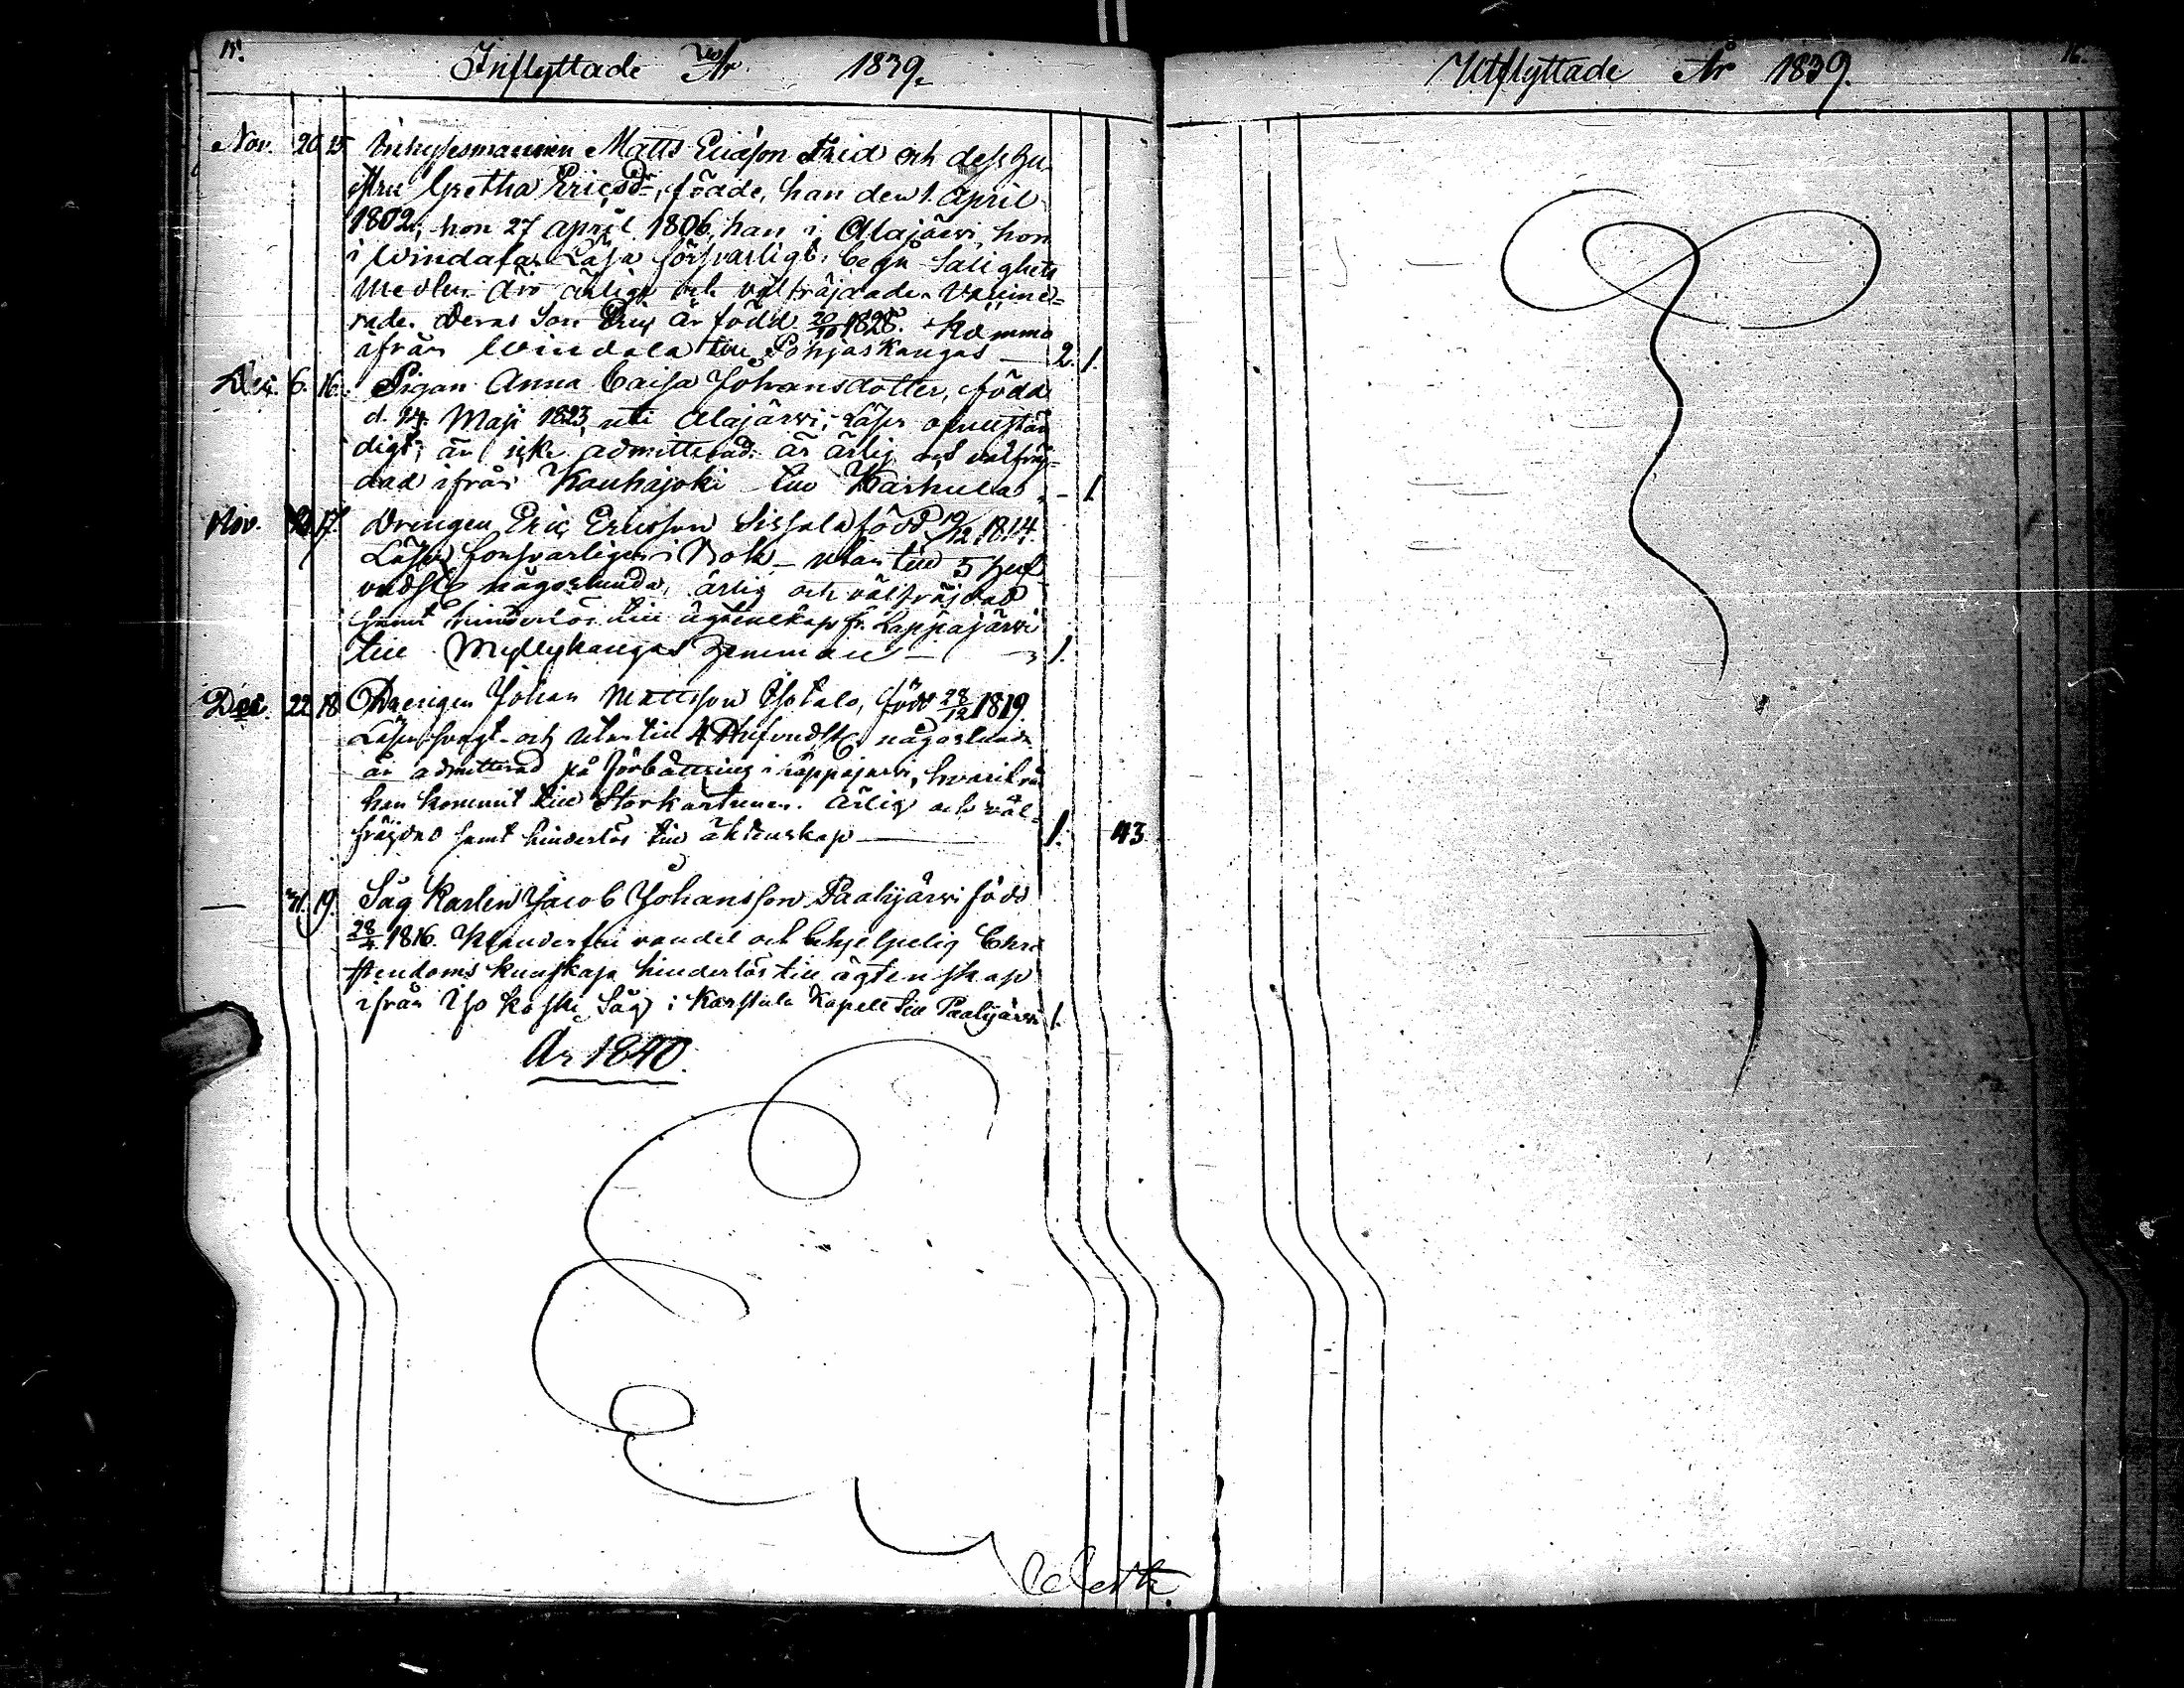 15.
Inflyttade År 1839.
Nov. 20 15 Inhysesmannen Matts Ericson Frid och dess hu-
stru Gretha Ericsdr, födde, han den 1. April
1802, hon 27 april 1806, han i Alajärvi, hon
i Windala. Läsa försvarligt, begå Salighets
Medlen. Äro ärliga och välfräjdade. Vaccine-
rade. Deras Son Eric är född 20/10 1828. Komma
ifrån Windala till Pohjaskangas — 2. 1.
Dec. 6. 16. Pigan Anna Caisa Johansdotter, född
d. 14. Maji 1823, uti Alajärvi; Läser ofullstän
digt; är icke admitterad. är ärlig och välfräj-
dad ifrån Kauhajoki till Karhula - 1
Nov. 17. Drengen Eric Ericsson Sissala född 19/12 1814.
Läser försvarligen i Bok - utan till 5 huf
vudst. någorlunda, ärlig och välfräjdad
samt hinderlös till ägtenskap fr. Lappajärvi
till Myllykangas hemman — 1.
Dec. 22 18 Drengen Johan Mattsson Isotalo, född 28/12 1819.
Läser svagt och utan till 4 Hufvudst. någorlunda
är admitterad på förbättring i Lappajärvi, hvarifrån
han kommit till Storkartunen. Ärlig och väl-
fräjdad samt hinderlös till äktenskap — 1. 43
— 31. 19. Såg Karlen Jacob Johansson Paalijärvi född
28/4 1816. Klanderfri vandel och behjelpelig Chri
stendoms kunskap hinderlös till ägtenskap
ifrån Iso koski Såg i Karstula Kapell till Paalijärvi 1.
År 1840.
16.
Utflyttade År 1839.